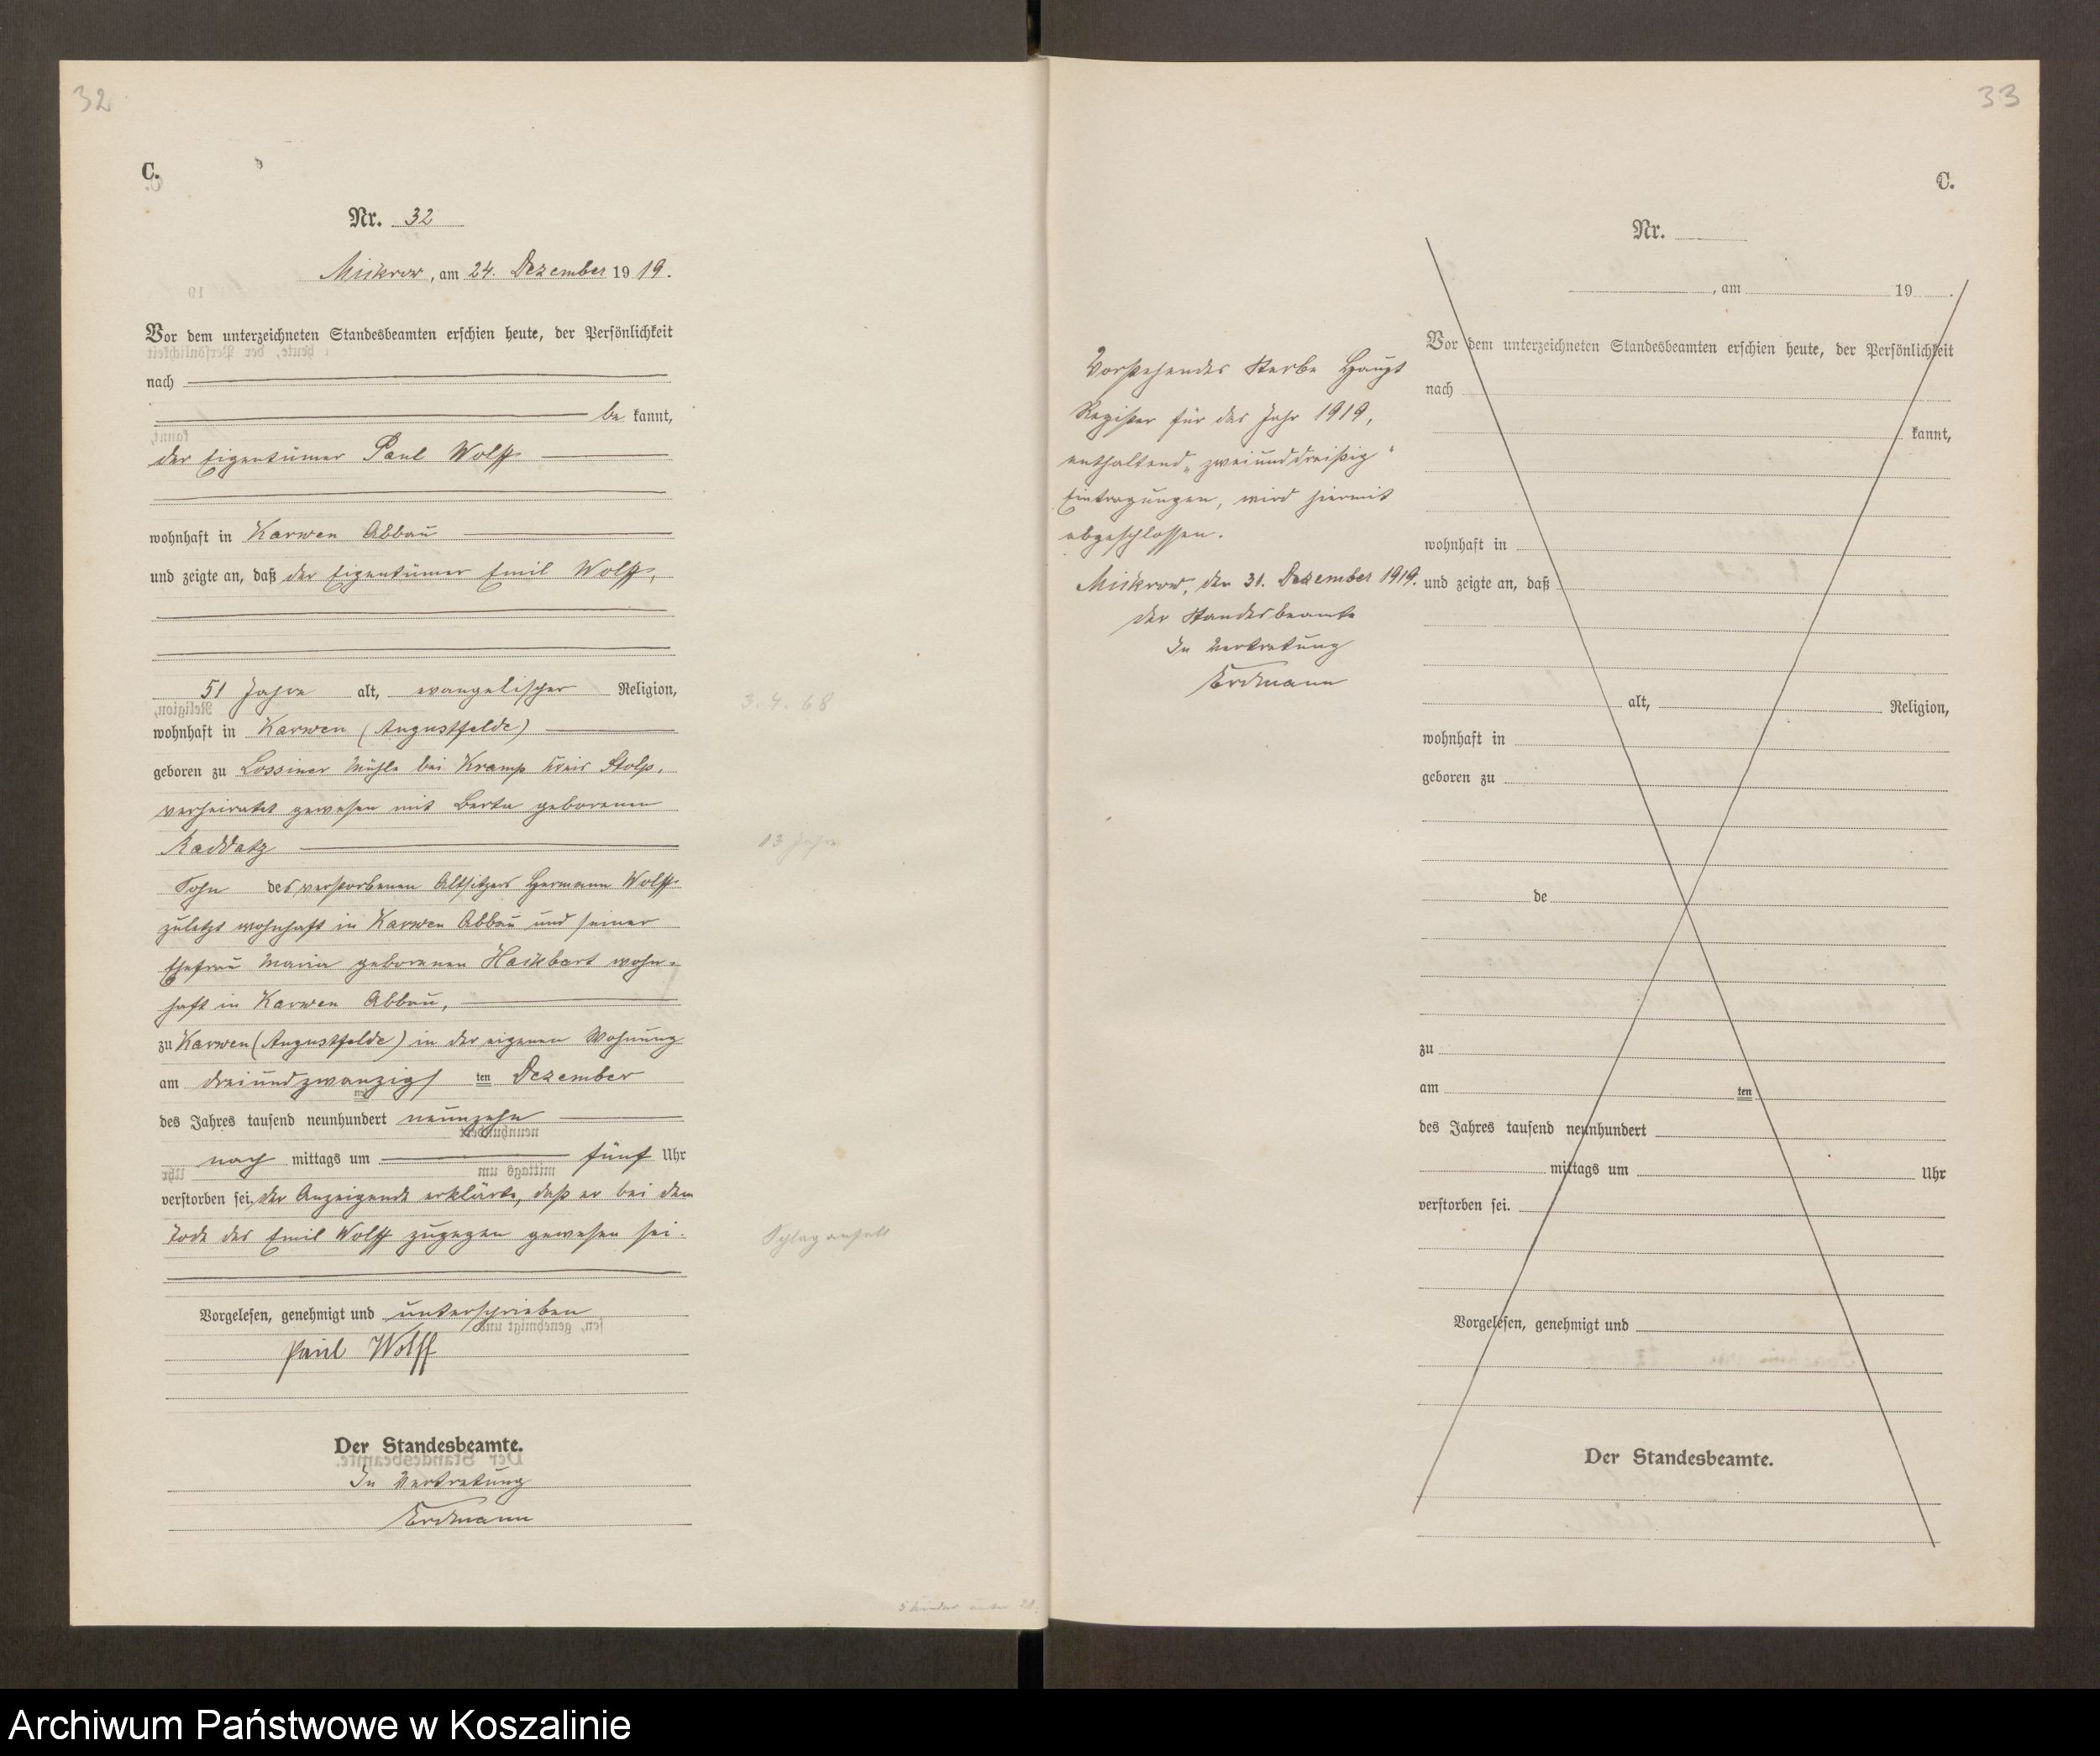 32
C.
Nr. 32
Mickrow, am 24. Dezember 1919.
Vor dem unterzeichneten Standesbeamten erschien heute, der Persönlichkeit
nach
be kannt,
der Eigentümer Paul Wolff
wohnhaft in Karwen Abbau
und zeigte an, daß der Eigentümer Emil Wolff,
51 Jahre alt, evangelischer Religion,
wohnhaft in Karwen (Augustfelde)
geboren zu Lossiner Mühle bei Kramp Kreis Stolp,
verheiratet gewesen mit Berta geborenen
Raddatz
Sohn des verstorbenen Altsitzers Hermann Wolff
zuletzt wohnhaft in Karwen Abbau und seiner
Ehefrau Maria geborenen wohn-
haft in Karwen Abbau,
zu Karwen (Augustfelde) in der eigenen Wohnung
am dreiundzwanzigsten Dezember
des Jahres tausend neunhundert neunzehn
nach mittags um fünf Uhr
verstorben sei, der Anzeigende erklärte, daß er bei dem
Tode des Emil Wolff zugegen gewesen sei.
Vorgelesen, genehmigt und unterschrieben
Paul Wolff
Der Standesbeamte.
In Vertretung
Erdmann
3.4.68
13 Jahre
Schlaganfall
5 Kinder unter 21.
33
C.
Vorstehendes Sterbe Haupt
Register für das Jahr 1919,
enthaltend „zweiunddreißig"
Eintragungen, wird hiermit
abgeschlossen.
Mickrow, den 31. Dezember 1919.
Der Standesbeamte
In Vertretung
Erdmann
Nr.
, am 19 .
Vor dem unterzeichneten Standesbeamten erschien heute, der Persönlichkeit
nach
kannt,
wohnhaft in
und zeigte an, daß
alt, Religion,
wohnhaft in
geboren zu
de
zu
am ten
des Jahres tausend neunhundert
mittags um Uhr
verstorben sei.
Vorgelesen, genehmigt und
Der Standesbeamte.
Archiwum Państwowe w Koszalinie